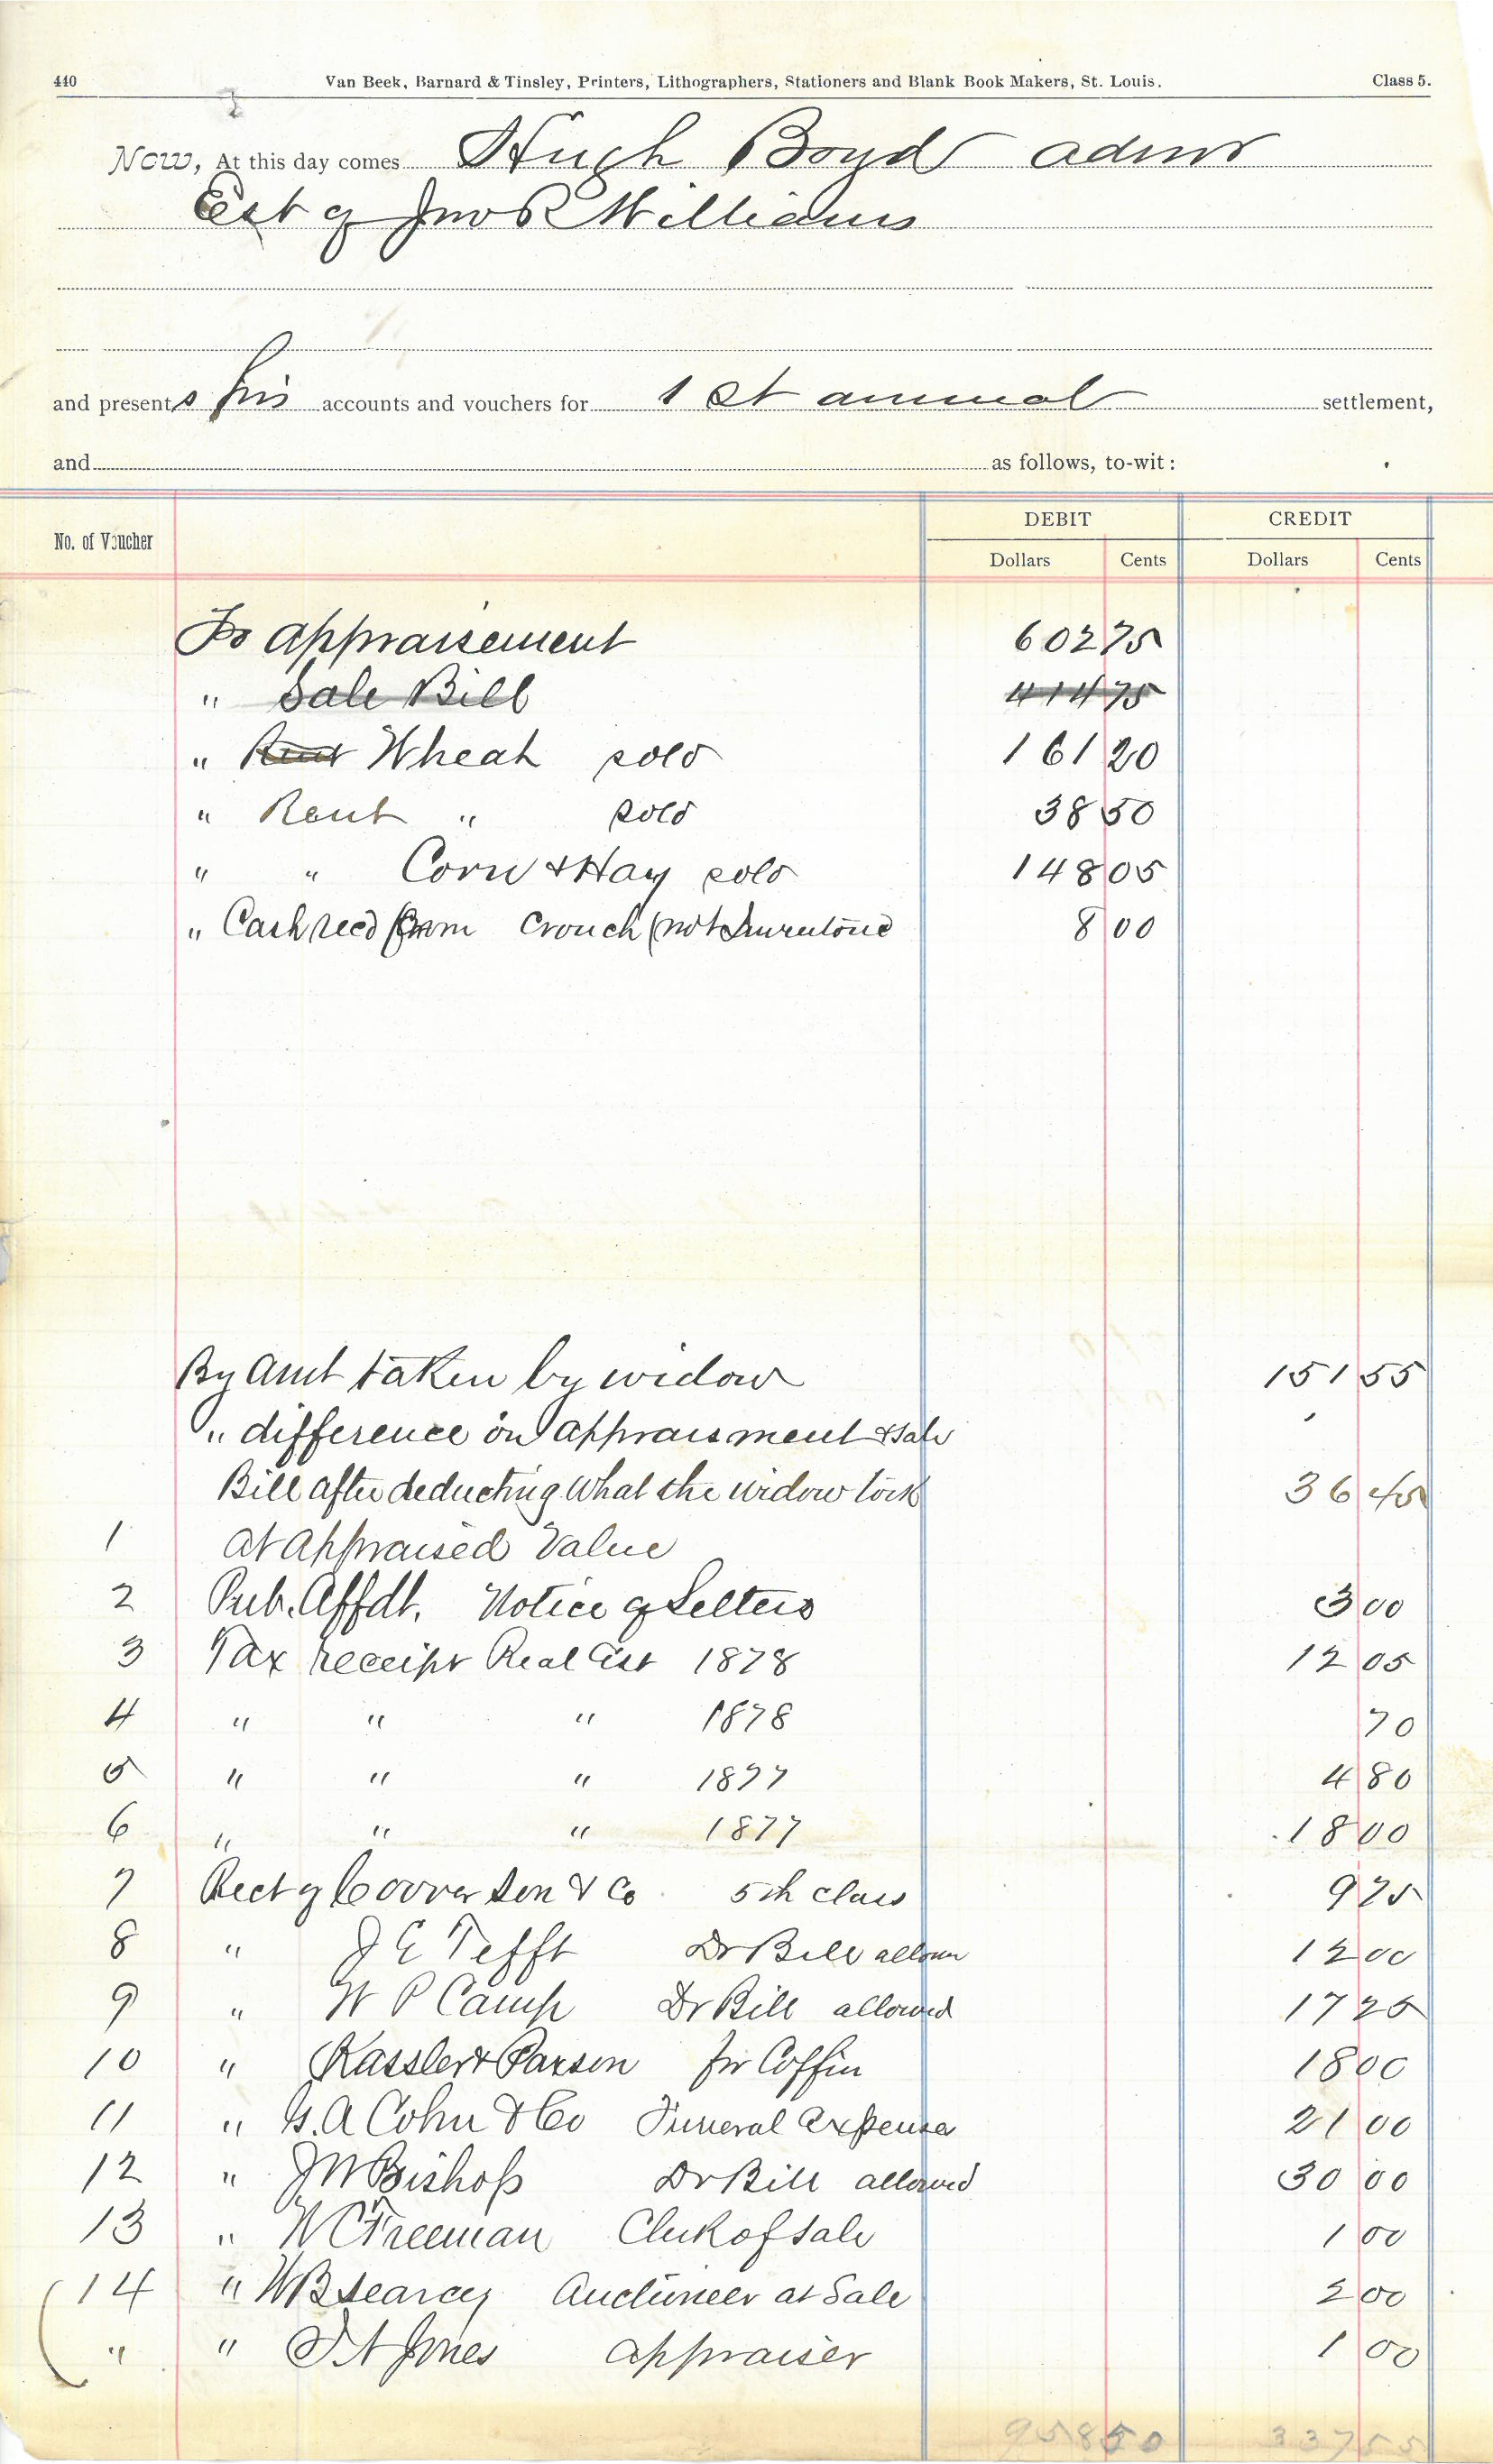 440 Van Beek, Barnard & Tinsley, Printers, Lithographers, Stationers and Blank Book Makers, St. Louis. Class 5.
Now, At this day comes Hugh Boyd admr
Est of Jno R Williams
and presents his accounts and vouchers for 1st annual settlement,
and as follows, to-wit:
No. of Voucher DEBIT CREDIT
Dollars Cents Dollars Cents
To Appraisement 602 75
" Sale Bill 414 75
" Rent Wheat sold 161 20
" Rent " sold 38 50
" " Corn & Hay sold 148 05
" Cash recd from Crouch (not Inventoried 8 00
By Amt taken by widow 151 55
" difference on Appraisment & Sale
Bill after deducting What the widow took 36 45
1 at Appraised Value
2 Pub. Affdt. Notice of Letters 3 00
3 Tax receipt Real Est 1878 12 05
4 " " " 1878 70
5 " " " 1877 4 80
6 " " " 1877 18 00
7 Rect of Coover Son & Co 5th class 9 75
8 " J E Tefft Dr Bill allow 12 00
9 " W P Camp Dr Bill allowed 17 25
10 " Kassler & Parson for Coffin 18 00
11 " G. A Cohn & Co Funeral Expenses 21 00
12 " J M Bishop Dr Bill allowed 30 00
13 " W C Freeman Clerk of Sale 1 00
14 " W B Searcy Auctioneer at Sale 2 00
" " J A Jones appraiser 1 00
958 50 337 55